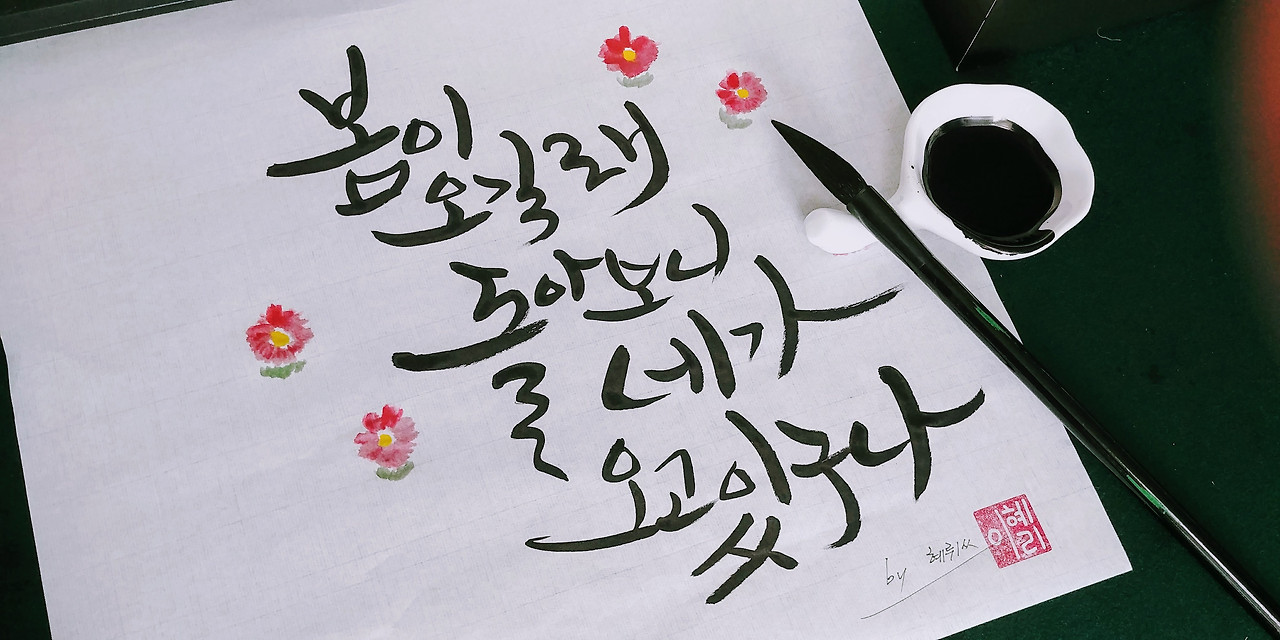 봄이 오길래
돌아보니 네가
오고있구나
by
이혜리